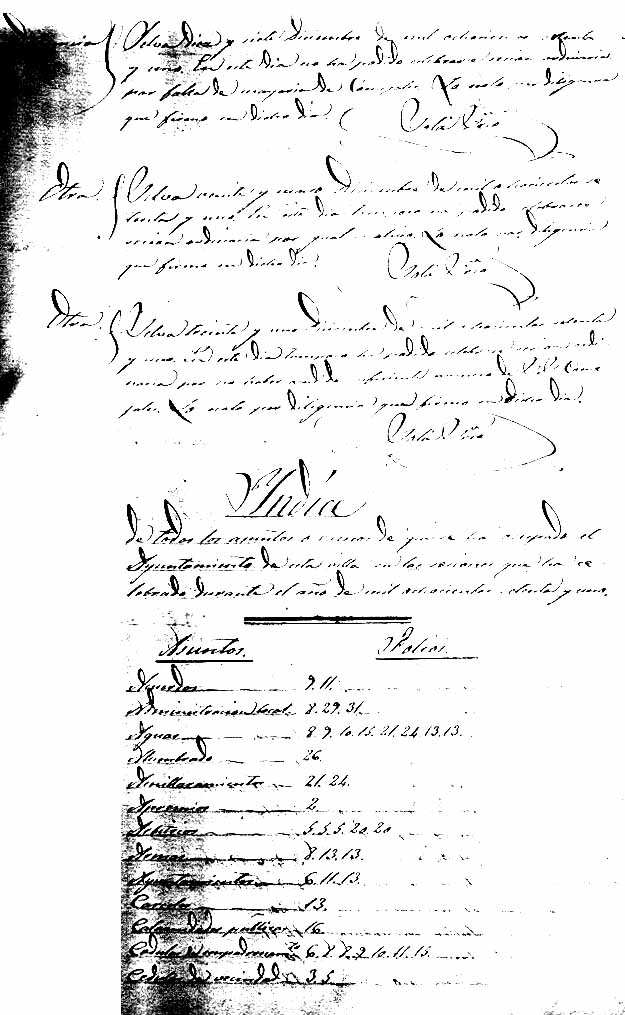 Selva diez y siete Diciembre de mil ochocientos ochenta
y uno. En este dia no ha podido celebrarse sesion ordinaria
por falta de mayoria de Concejales. Lo noto por diligencia
que firmo en dicho dia
Solá Srio
Otra Selva veinte y cuatro Diciembre de mil ochocientos
ochenta y uno. En este dia tampoco ha podido celebrarse
sesion ordinaria por igual motivo. Lo noto por diligencia
que firmo en dicho dia.
Solá Srio
Otra Selva treinta y uno Diciembre de mil ochocientos ochenta
y uno. En este dia tampoco ha podido celebrarse sesion ordi
naria por no haber asistido suficiente numero de S.S. Conce
jales. Lo noto por diligencia que firmo en dicho dia.
Solá Srio
Indice
de todos los asuntos de que se ha ocupado el
Ayuntamiento de esta villa en las sesiones que ha ce
lebrado durante el año de mil ochocientos ochenta y uno.
Asuntos. Folios.
Acuerdos 9. 11.
Administracion local 8. 29. 31.
Aguas 8. 9. 10. 15. 21. 24. 13. 13.
Alumbrado 26.
Amillaramiento 21. 24.
Apremios 2.
Arbitrios 5. 5. 5. 20. 20
8. 13. 13.
Ayuntamientos 6. 11. 13.
13.
Calamidades públicas 16
Cedulas de empadronamto 6. 8. 8. 9. 10. 11. 13.
Cedulas de vecindad 3. 5.